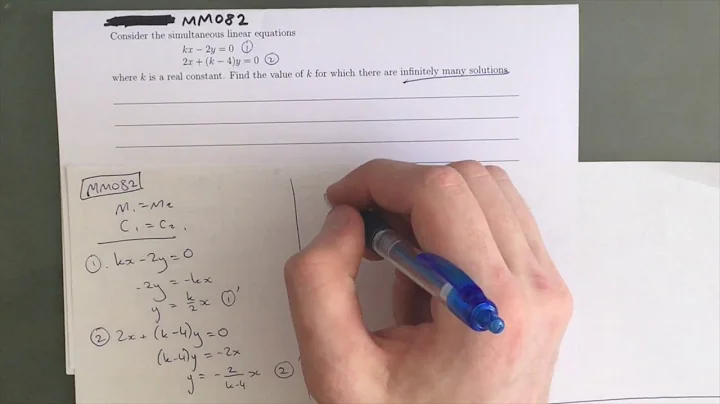 MM082
Consider the simultaneous linear equations
kx − 2y = 0 ①
2x + (k − 4)y = 0 ②
where k is a real constant. Find the value of k for which there are infinitely many solutions.
MM082
M₁ = M₂
C₁ = C₂
① kx − 2y = 0
-2y = -kx
y = k/2 x ①'
② 2x + (k-4)y = 0
(k-4)y = -2x
y = - 2/k-4 x ②'